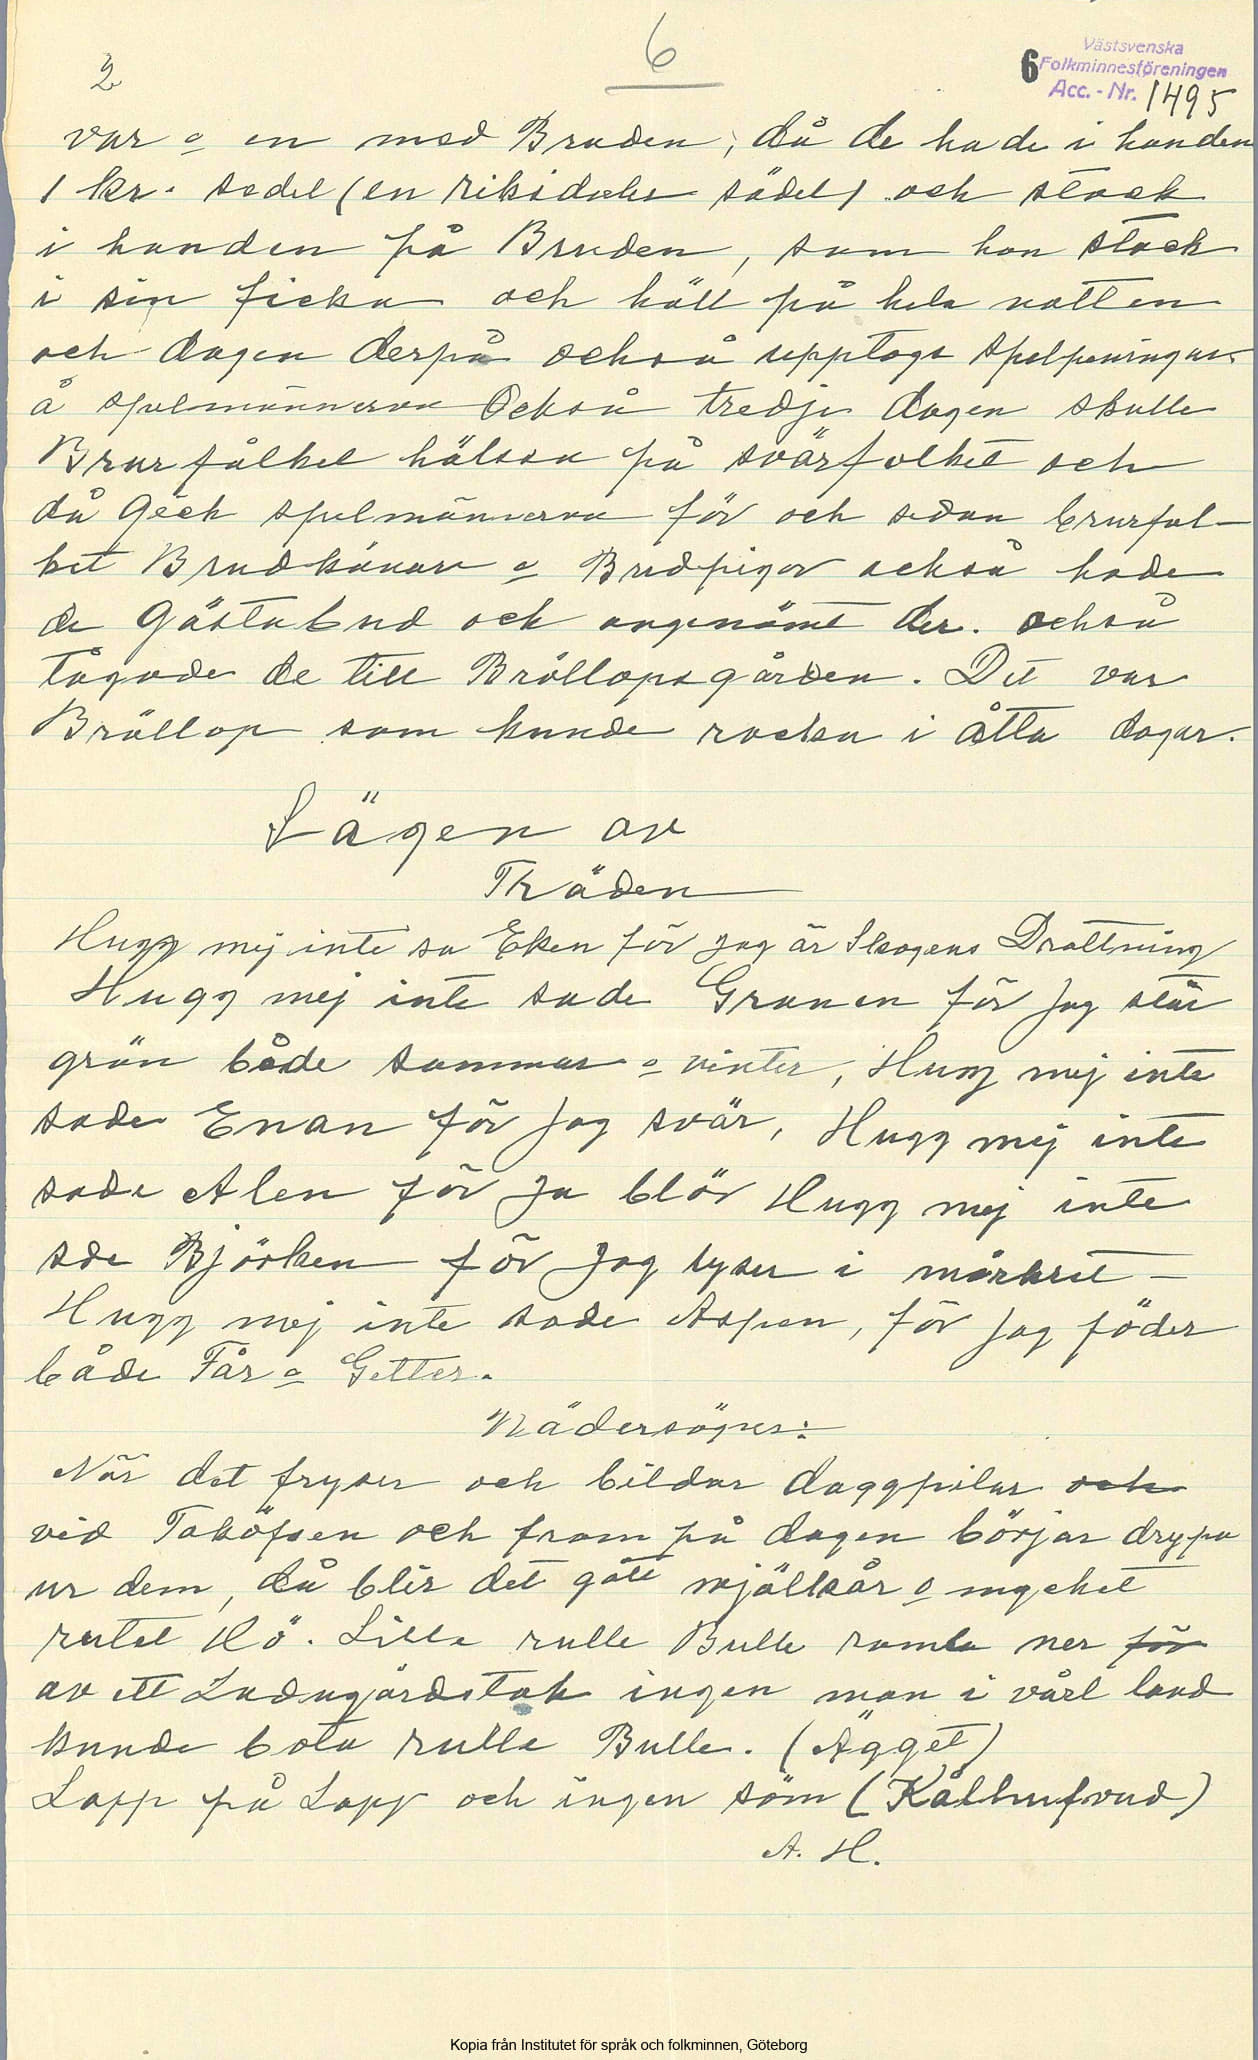 2
6
6 Västsvenska
Folkminnesföreningen
Acc.-Nr. 1495
var o en med Bruden, då de hade i handen
1 kr. sedel (en riksdaler sädel) och stack
i handen på Bruden, som hon stack
i sin ficka och hölt på hela natten
och dagen derpå också upptogs spelpeningar
å spelmännerna Också tredje dagen skulle
Brurfålket hälsa på svärfolket och
då geck spelmännerna för och sedan brurfol-
ket Brudkånar o Brudpigor också hade
de Gästabud och angenämt der. också
tågade de till Bröllopsgården. Det var
Bröllop som kunde racka i åtta dagar.
Sägen av
Träden
Hugg mej inte sa Eken för jag är Skogens Drottning
Hugg mej inte sade Granen för jag står
grön både sommar o vinter, Hugg mej inte
sade Enan för jag svär, Hugg mej inte
sade Alen för ja blör Hugg mej inte
sde Björken för jag lyser i mörkret -
Hugg mej inte sade Aspen, för jag föder
både Får o Getter.
Vädersägner:
När det fryser och bildar daggpilar och
vid Taköfsen och fram på dagen börjar drypa
ur dem, då blir det gått mjölkår o mycket
rutet Hö. Lille rulle Bulle ramla ner för
av ett Ladugårdstak ingen man i vårt land
kunde bota rulle Bulle. (Ägget)
Lapp på Lapp och ingen söm (Kålhufvud)
A. H.
Kopia från Institutet för språk och folkminnen, Göteborg